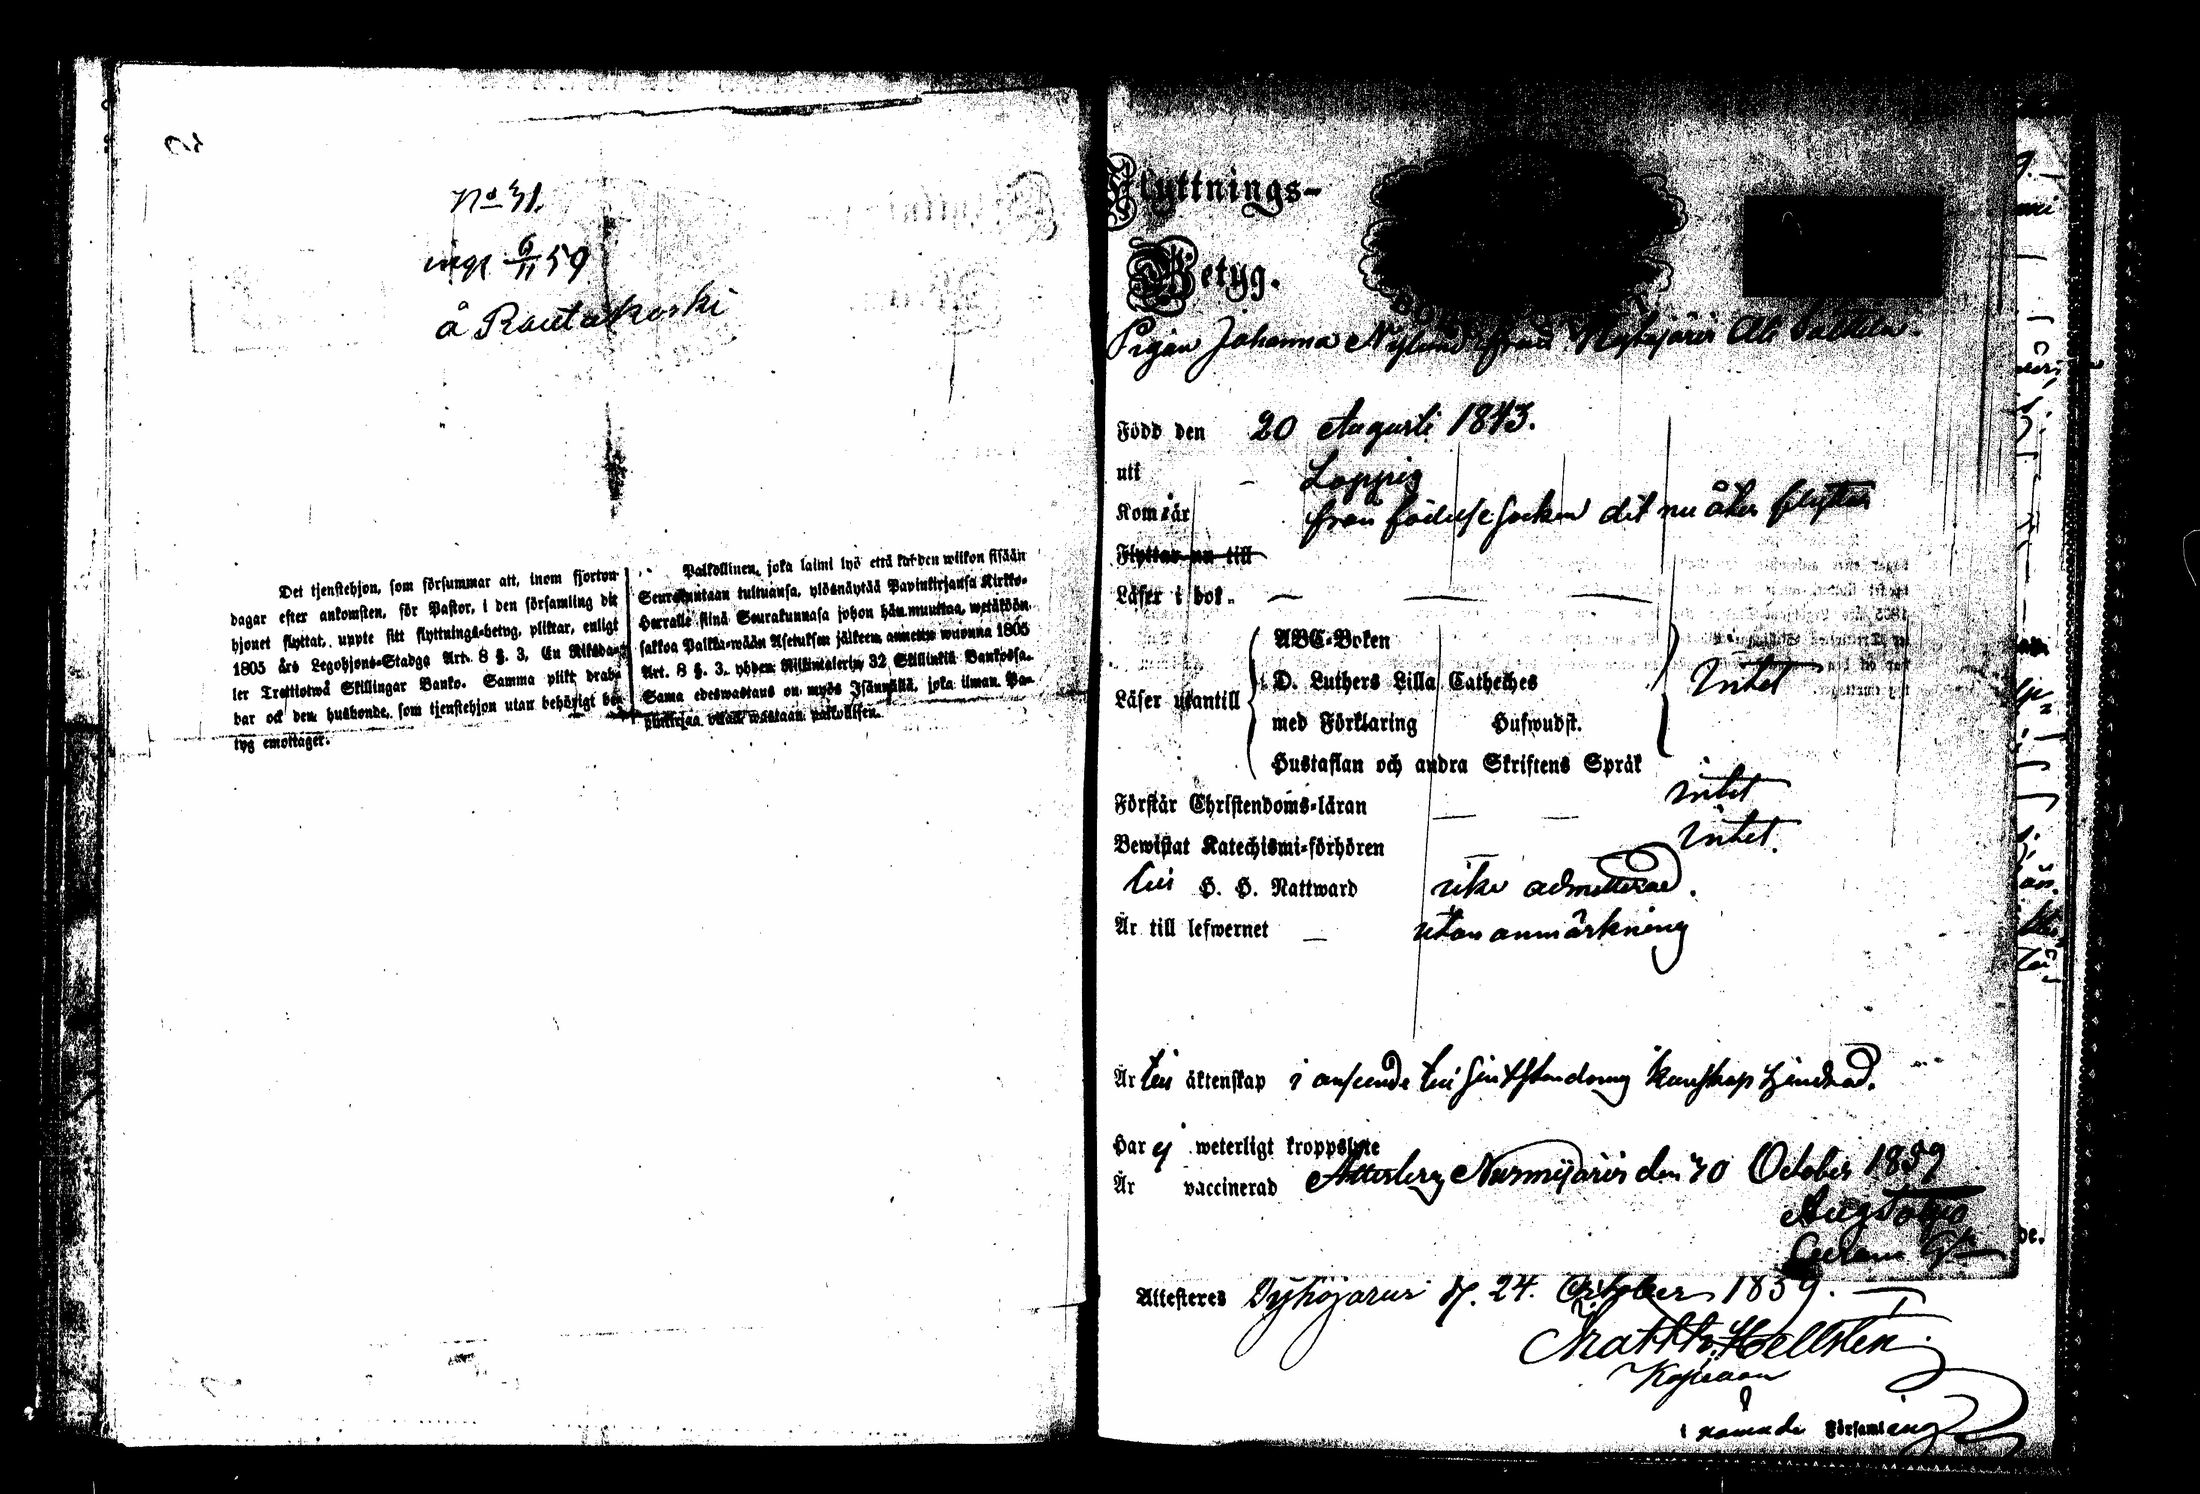 No 31.
ingf 6/11 59
å Rautakoski
Det tjenstehjon, som försummar att, inom fjorton
dagar efter ankomsten, för Pastor, i den församling dit
hjonet flyttat, uppte sitt flyttnings-betyg, pliktar, enligt
1805 års Legohjons-Stadga Art. 8 §. 3, En Riksda-
ler Trettiotwå Skillingar Banko. Samma plikt drab-
bar ock den husbonde, som tjenstehjon utan behörigt be-
tyg emottager.
Palkollinen, joka laimi lyö että kahden wiikon sisään
Seurakuntaan tultuansa, ylösnäytää Papinkirjansa Kirkko-
Herralle siinä Seurakunnasa johon hän muuttaa, wetäköön
sakkoa Palkka-wään Asetuksen jälkeen annettu wuonna 1805
Art. 8 §. 3. yhden Riksintalerin 32 Skillinkiä Bankossa.
Sama edeswastaus on myös Isännällä, joka ilman Pa-
pinkirjaa ottaa wastaan palkollisen.
Flyttnings-
Betyg.
Pigan Johanna Nylund från
Född den 20 Augusti 1843.
uti Loppis
Kom år från födelse socken dit nu åter flyttar
Flyttar nu till
Läser i bok
ABC-Boken
D. Luthers Lilla Catheches
Läser utantill intet
med Förklaring Huswudst.
Hustaflan och andra Skriftens Språk
Förstår Christendoms-läran intet
Bewistat Katechismi-förhören intet.
till H. H. Nattward icke admitterad.
Är till lefwernet utan anmärkning
Är till äktenskap i anseende till Christendoms kunskap hindrad.
Har ej weterligt kroppslyte
Är vaccinerad Attesterar Nurmijärvi den 30 October 1859
Attesteres d. 24. October 1859.
Matth. Hellsten
Kaplan
i nämnde Församling